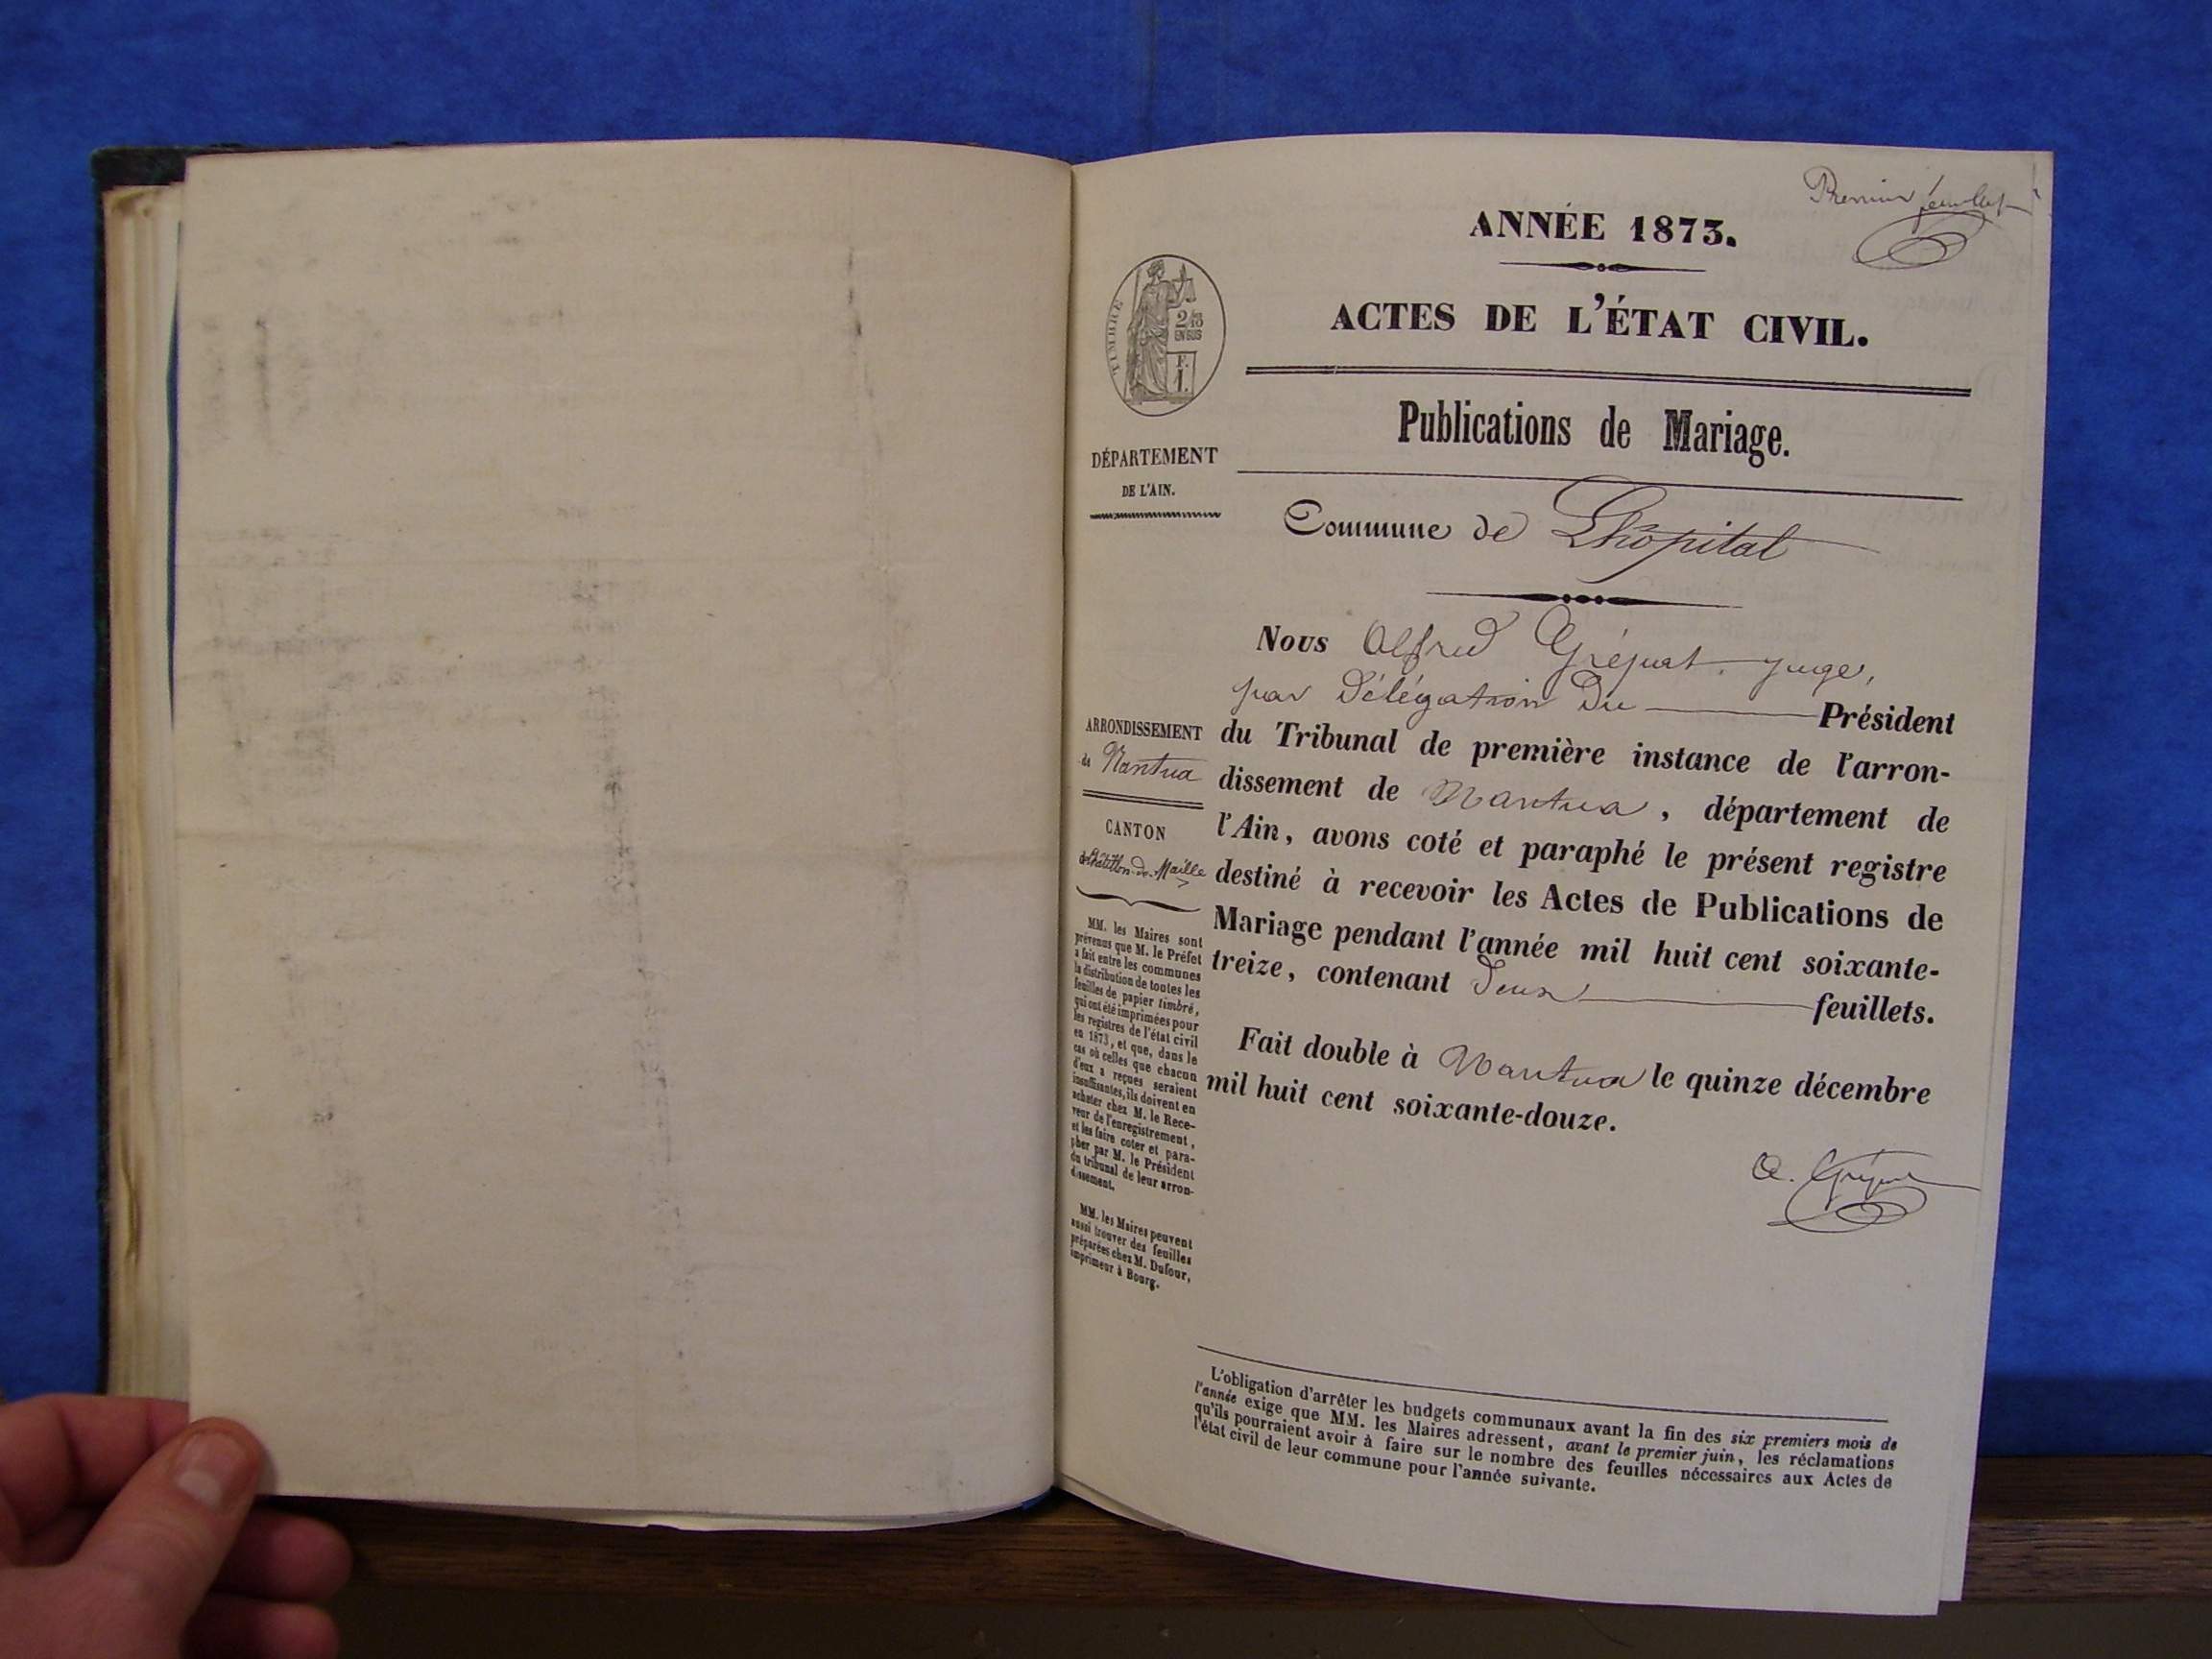 Premier feuillet
ANNÉE 1873.
ACTES DE L'ÉTAT CIVIL.
TIMBRE
2/10
EN SUS
F.
1.
Publications de Mariage.
DÉPARTEMENT
DE L'AIN.
Commune de Lhôpital
Nous Alfred juge,
par Délégation Du Président
du Tribunal de première instance de l'arron-
dissement de Nantua, département de
l'Ain, avons coté et paraphé le présent registre
destiné à recevoir les Actes de Publications de
Mariage pendant l'année mil huit cent soixante-
treize, contenant Deux feuillets.
Fait double à Nantua le quinze décembre
mil huit cent soixante-douze.
ARRONDISSEMENT
de Nantua
CANTON
de Châtillon-de-Maille
MM. les Maires sont
prévenus que M. le Préfet
a fait entre les communes
la distribution de toutes les
feuilles de papier timbré,
qui ont été imprimées pour
les registres de l'état civil
en 1873, et que, dans le
cas où celles que chacun
d'eux a reçues seraient
insuffisantes, ils doivent en
acheter chez M. le Rece-
veur de l'enregistrement,
et les faire coter et para-
pher par M. le Président
du tribunal de leur arron-
dissement.
MM. les Maires peuvent
aussi trouver des feuilles
préparées chez M. Dufour,
imprimeur à Bourg.
L'obligation d'arrêter les budgets communaux avant la fin des six premiers mois de
l'année exige que MM. les Maires adressent, avant le premier juin, les réclamations
qu'ils pourraient avoir à faire sur le nombre des feuilles nécessaires aux Actes de
l'état civil de leur commune pour l'année suivante.